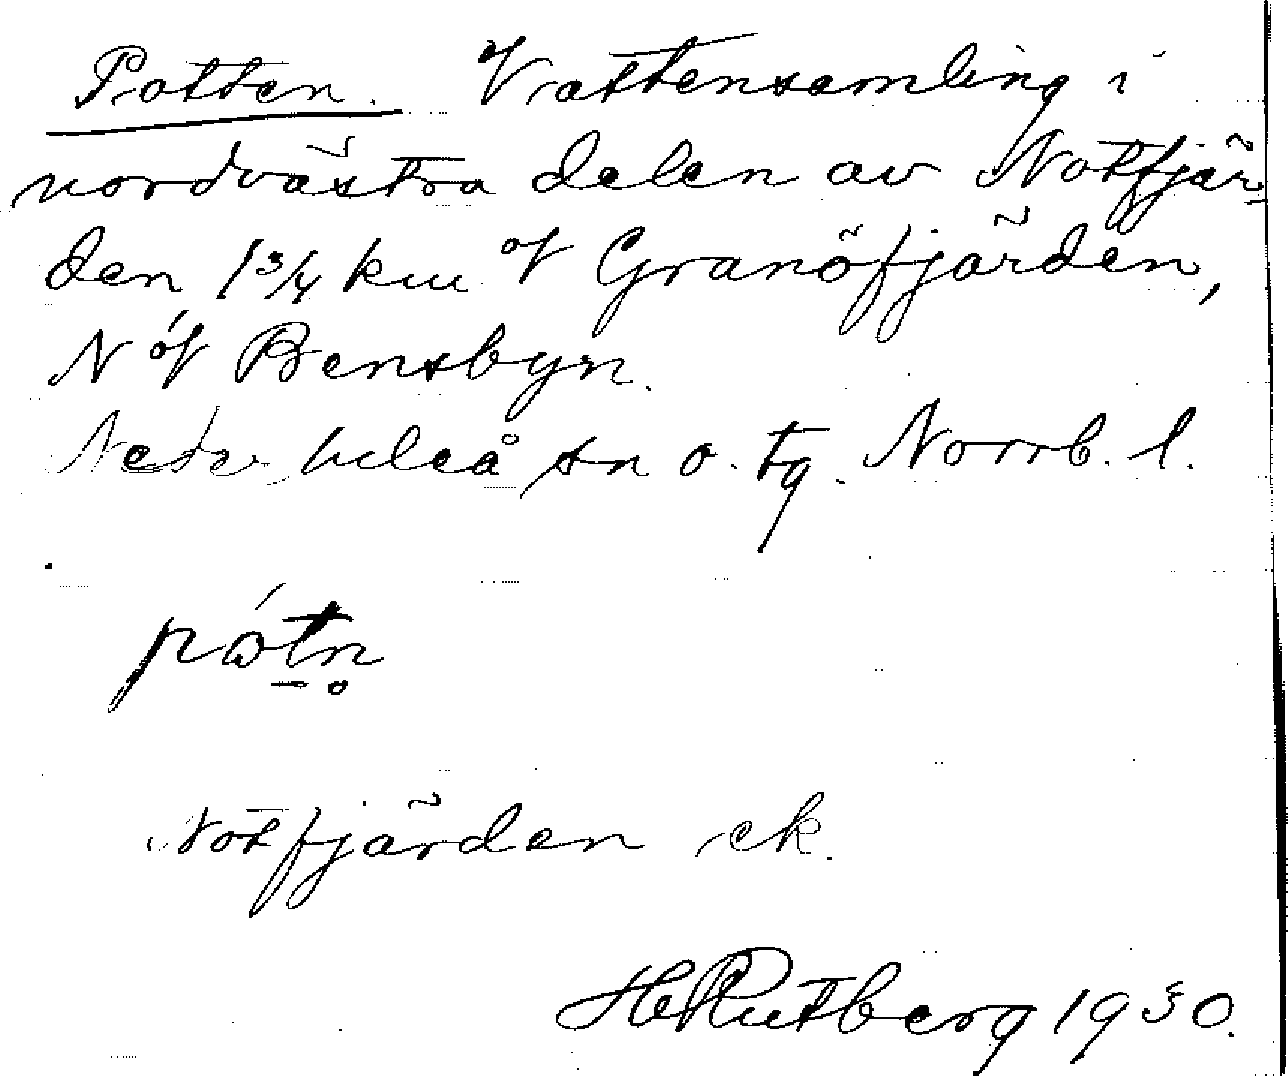 Potten. Vattensamling i
nordvästra delen av Notfjär-
den, 1 3/4 km V Granöfjärden,
N of Bensbyn.
Nederluleå sn o. tg. Norrb. l.
pótn̥
Notfjärden ek.
H Rutberg 1930.